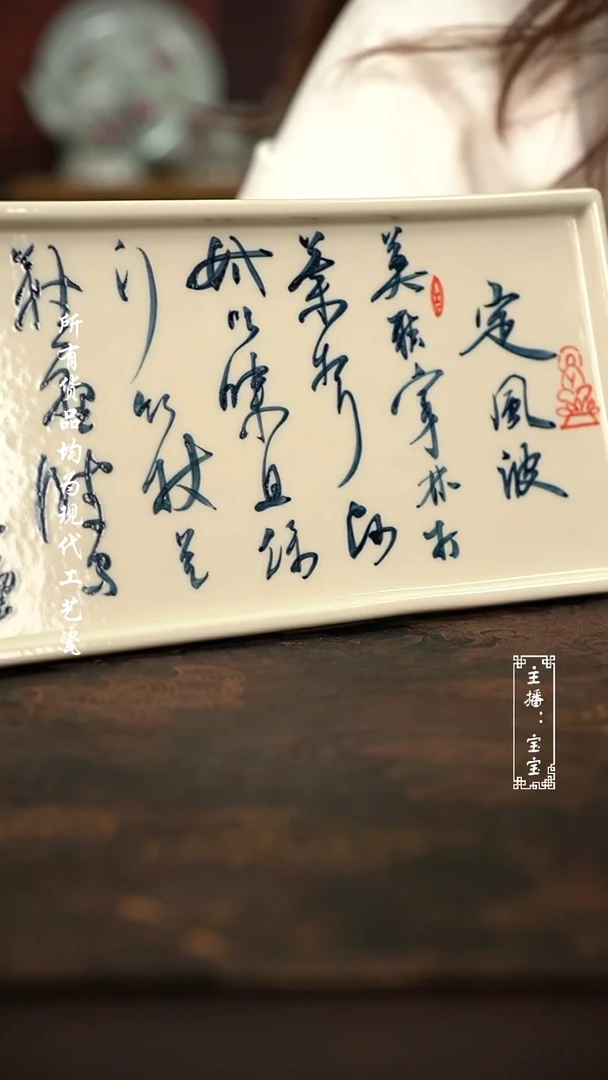 定風波
莫聽穿林打
葉聲何
妨吟嘯且徐
行竹杖芒
鞋輕勝馬
所有货品均为现代工艺瓷
主播：宝宝